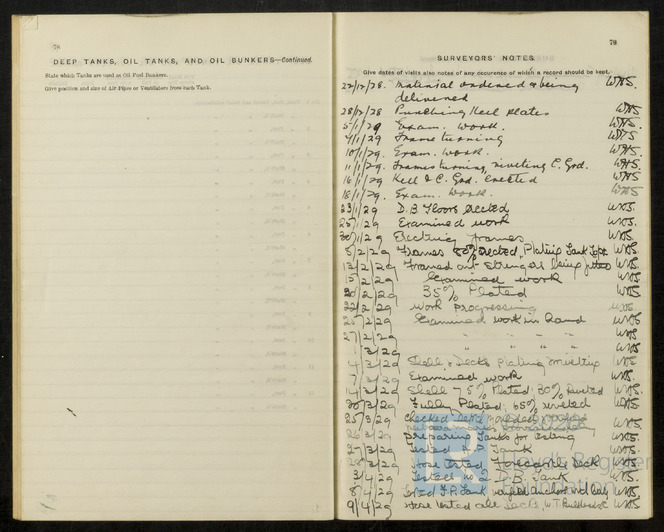 78
DEEP TANKS, OIL TANKS, AND OIL BUNKERS—Continued.
State which Tanks are used as Oil Fuel Bunkers.
Give position and size of Air Pipes or Ventilators from each Tank.
79
SURVEYORS' NOTES.
Give dates of visits also notes of any occurence of which a record should be kept.
22/12/28. Material ordered & being
delivered
28/12/28 Punching Keel Plates
5/1/29 Exam. Work.
Frame turning
10/1/29. Exam. Work.
11/1/29. Frames turning, riveting C. Grd.
16/1/29 Keel & C. Grd. Erected
18/1/29. Exam. Work.
23/1/29 D.B. Floors erected
25/1/29 Examined work
30/1/29 Erecting frames
8/2/29 Frames 80% erected, Plating Tank Tops
12/2/29 Framed out Stringers being fitted
15/2/29 Examined work
20/2/29 35% Plated
22/2/29 Work progressing
Examined work in hand
27/2/29 " " " "
1/3/29 " " " "
4/3/29 Shell & Decks Plating
7/3/29 Examined work
14/3/29 Shell 75% Plated 30% Riveted
Fully Plated, 65% riveted
25/3/29 Checked
26/3/29 Preparing Tanks for testing
27/3/29 Tested A.P. Tank
28/3/29 Hose tested Forecastle Deck
3/4/29 Tested No 2 D.B. Tank
8/4/29 Tested F.P. Tank verified anchors and
9/4/29 Hose tested all decks, W.T. Bulkheads
Lloyd's Register
Foundation